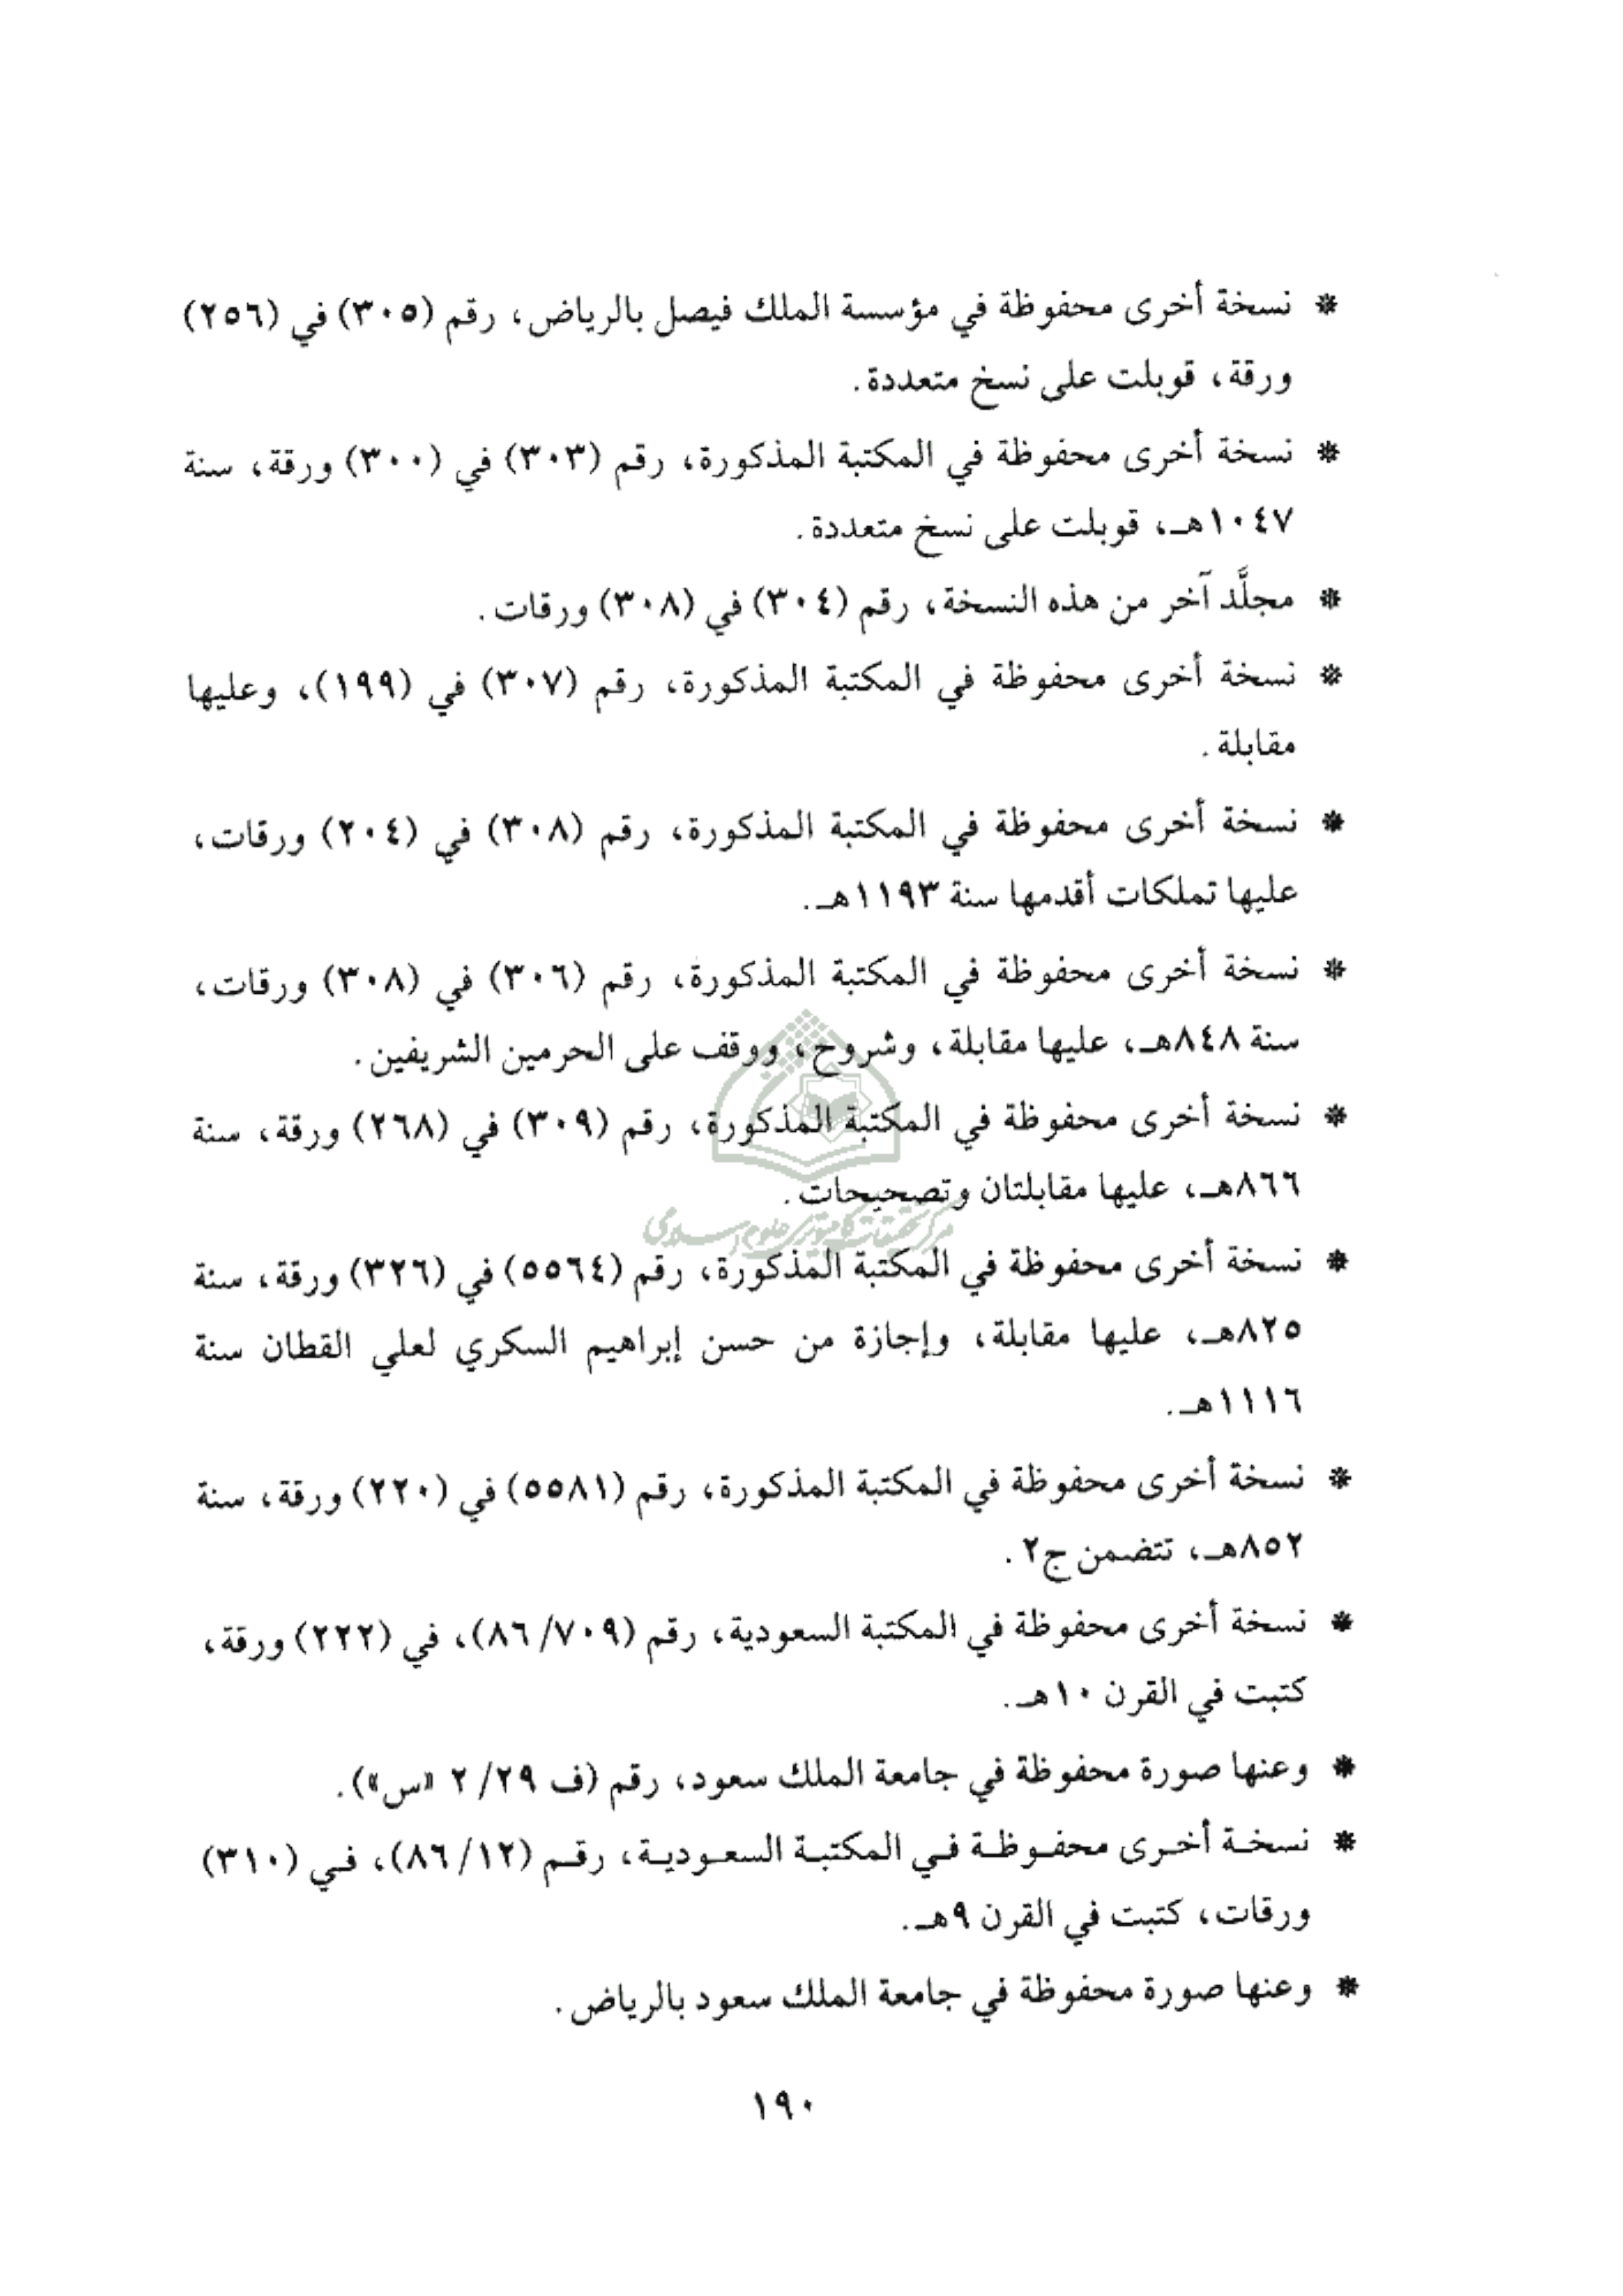 * نسخة أخرى محفوظة في مؤسسة الملك فيصل بالرياض، رقم (٣٠٥) في (٢٥٦)
ورقة، قوبلت على نسخ متعددة.
* نسخة أخرى محفوظة في المكتبة المذكورة، رقم (٣٠٣) في (٣٠٠) ورقة، سنة
١٠٤٧هـ، قوبلت على نسخ متعددة.
* مجلَّد آخر من هذه النسخة، رقم (٣٠٤) في (٣٠٨) ورقات.
* نسخة أخرى محفوظة في المكتبة المذكورة، رقم (٣٠٧) في (١٩٩)، وعليها
مقابلة.
* نسخة أخرى محفوظة في المكتبة المذكورة، رقم (٣٠٨) في (٢٠٤) ورقات،
عليها تملكات أقدمها سنة ١١٩٣هـ.
* نسخة أخرى محفوظة في المكتبة المذكورة، رقم (٣٠٦) في (٣٠٨) ورقات،
سنة ٨٤٨هـ، عليها مقابلة، وشروح، ووقف على الحرمين الشريفين.
* نسخة أخرى محفوظة في المكتبة المذكورة، رقم (٣٠٩) في (٢٦٨) ورقة، سنة
٨٦٦هـ، عليها مقابلتان وتصحيحات.
مركز تحقیقات کامپیوتری علوم اسلامی
* نسخة أخرى محفوظة في المكتبة المذكورة، رقم (٥٥٦٤) في (٣٢٦) ورقة، سنة
٨٢٥هـ، عليها مقابلة، وإجازة من حسن إبراهيم السكري لعلي القطان سنة
١١١٦هـ.
* نسخة أخرى محفوظة في المكتبة المذكورة، رقم (٥٥٨١) في (٢٢٠) ورقة، سنة
٨٥٢هـ، تتضمن ج٢.
* نسخة أخرى محفوظة في المكتبة السعودية، رقم (٨٦/٧٠٩)، في (٢٢٢) ورقة،
كتبت في القرن ١٠هـ.
* وعنها صورة محفوظة في جامعة الملك سعود، رقم (ف ٢/٢٩ «س»).
* نسخة أخرى محفوظة في المكتبة السعودية، رقم (٨٦/١٢)، في (٣١٠)
ورقات، كتبت في القرن ٩هـ.
* وعنها صورة محفوظة في جامعة الملك سعود بالرياض.
١٩٠